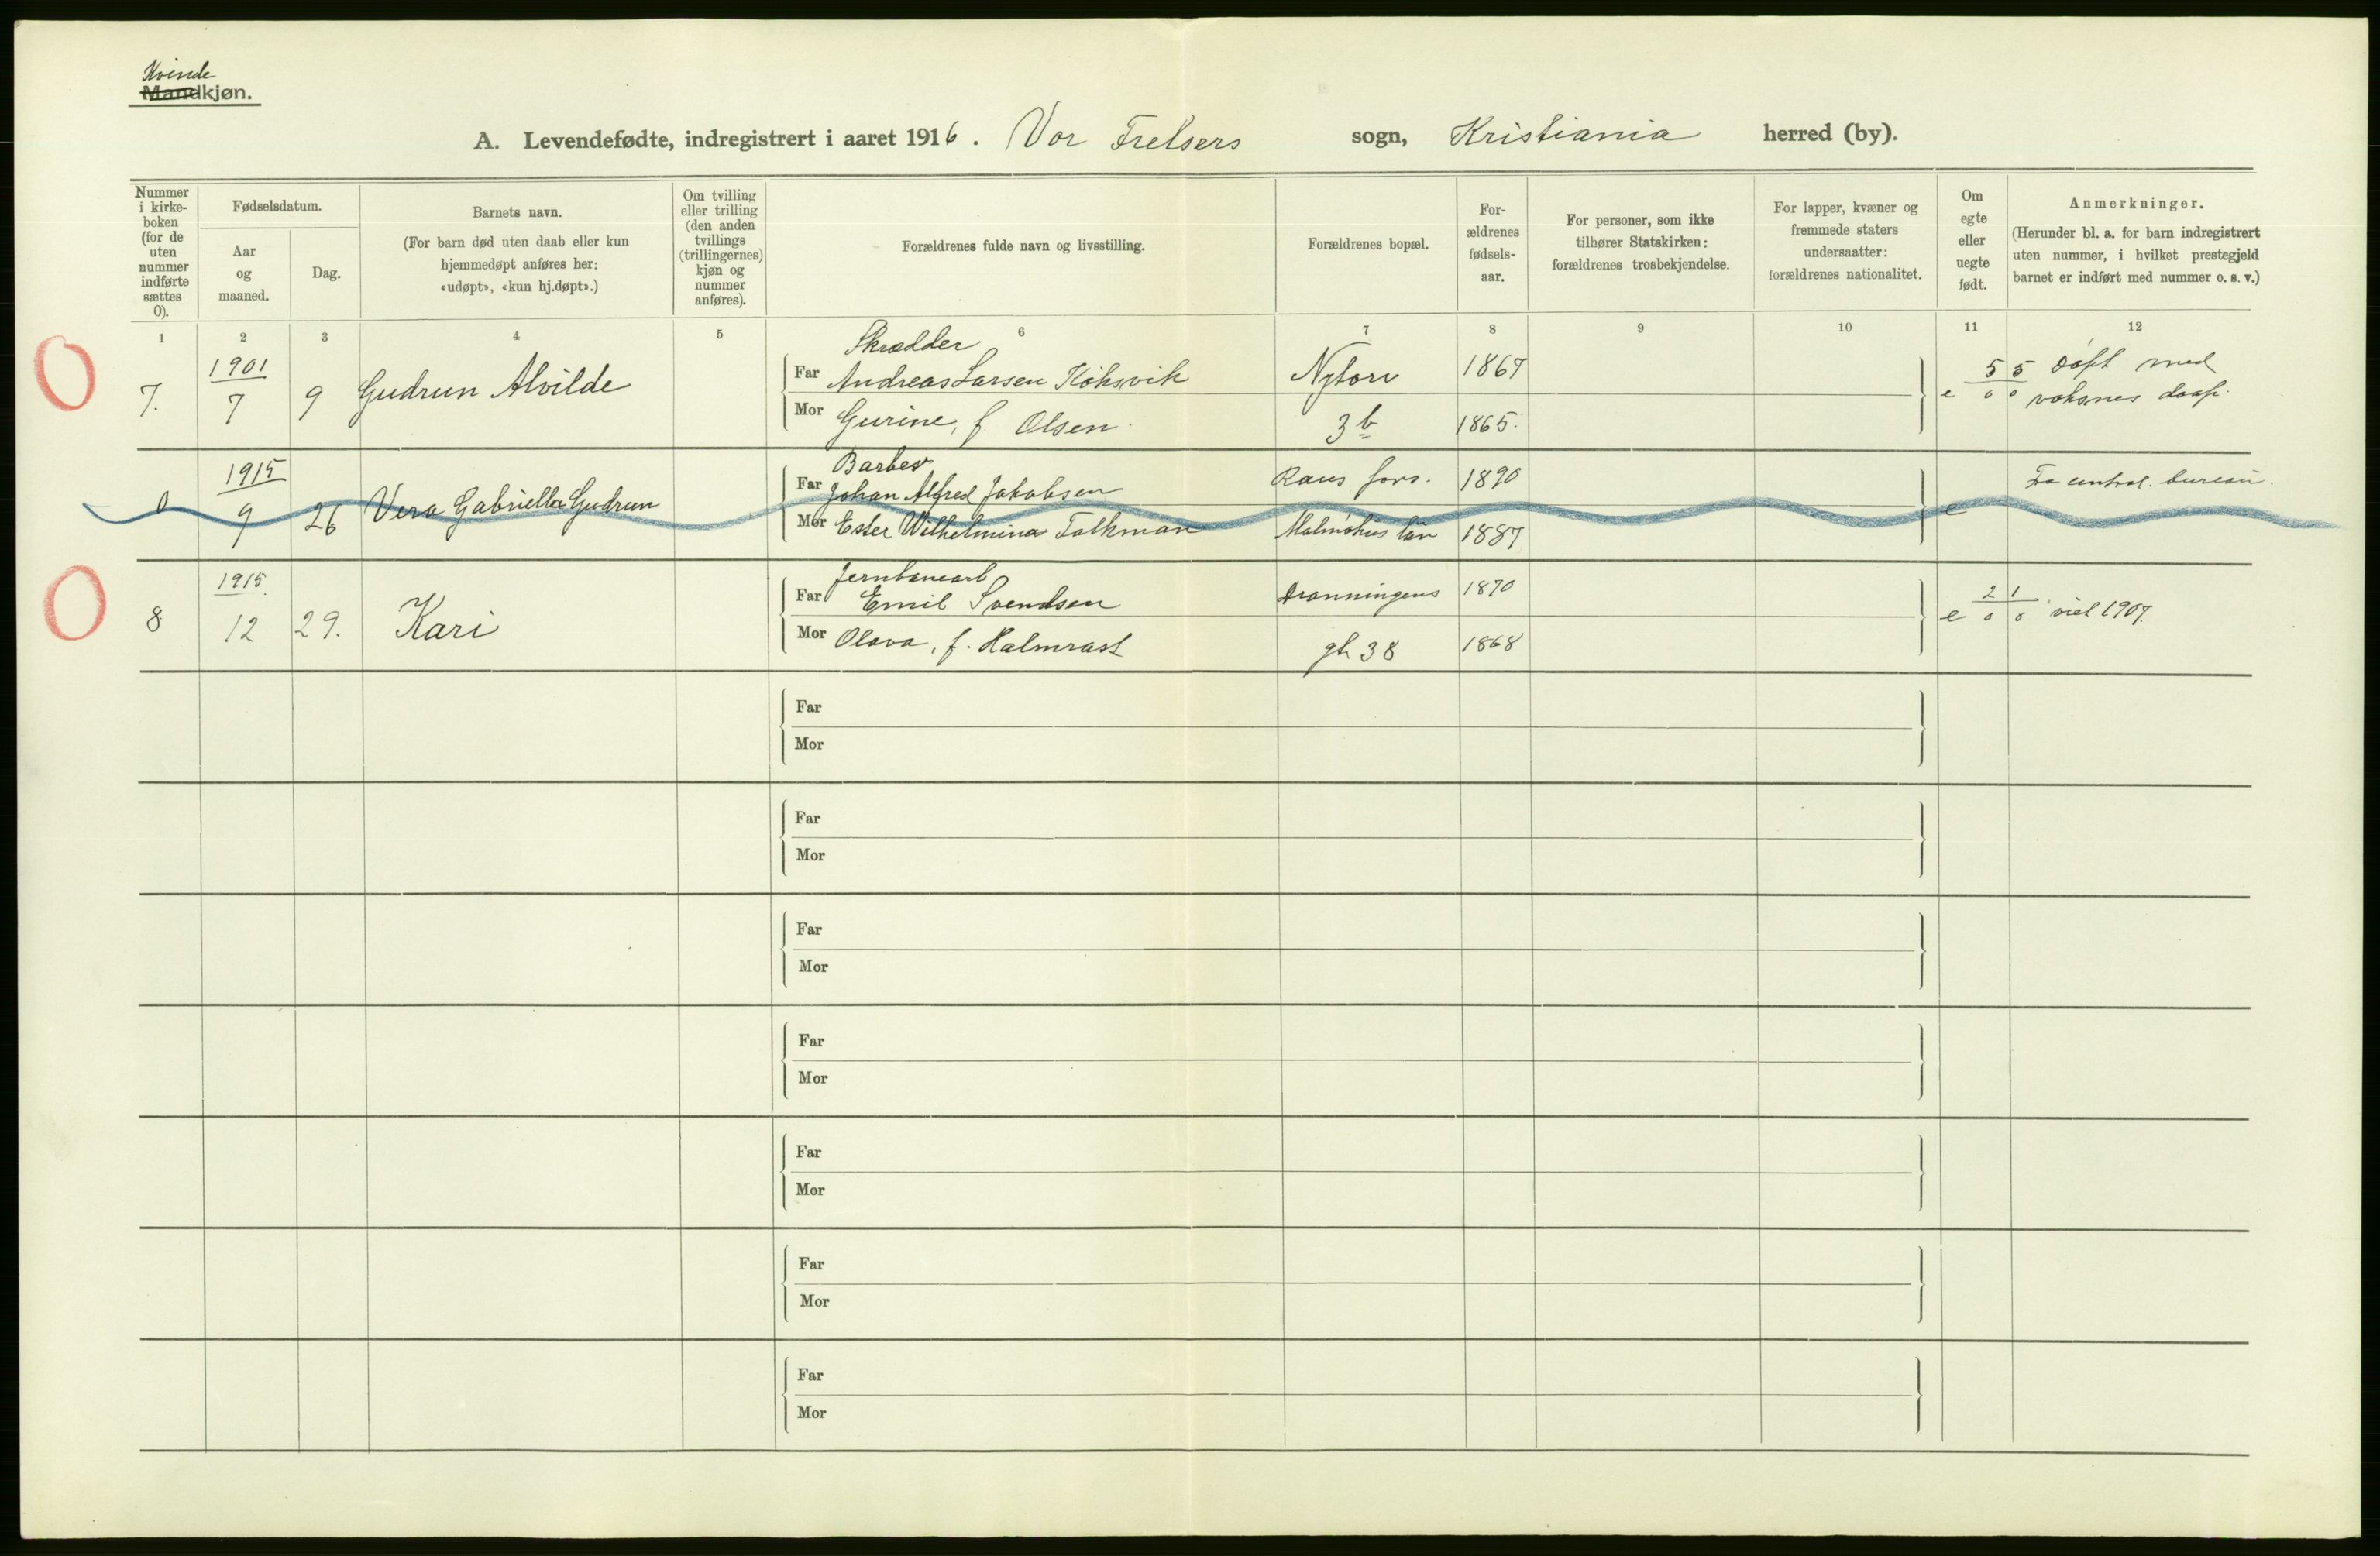 Kvinde
Mandkjøn.
A. Levendefødte, indregistrert i aaret 1916. Vor Frelsers sogn, Kristiania herred (by).
Nummer i kirke-boken (for de uten nummer indførte sættes 0).
Fødselsdatum.
Aar og maaned.
Dag.
Barnets navn.
(For barn død uten daab eller kun hjemmedøpt anføres her: «udøpt», «kun hj.døpt».)
Om tvilling eller trilling (den anden tvillings (trillingernes) kjøn og nummer anføres).
Forældrenes fulde navn og livsstilling.
Forældrenes bopæl.
For-ældrenes fødsels-aar.
For personer, som ikke tilhører Statskirken: forældrenes trosbekjendelse.
For lapper, kvæner og fremmede staters undersaatter: forældrenes nationalitet.
Om egte eller uegte født.
Anmerkninger.
(Herunder bl. a. for barn indregistrert uten nummer, i hvilket prestegjeld barnet er indført med nummer o. s. v.)
1 2 3 4 5 6 7 8 9 10 11 12
Skrædder
7. 1901 7 9 Gudrun Alvilde Far Andreas Larsen Kőksvik Nytorv 1867 e 5 5 Døpt med
Mor Gurine, f. Olsen 3b 1865. 0 0 voksnes daap.
Barber
0 1915 9 26 Vera Gabriella Gudrun Far Johan Alfred Jakobsen Raus fors. 1890 e Fra central. bureau.
Mor Ester Wilhelmina Falkman Malmöhus län 1887
Jernbanearb.
8 1915. 12 29. Kari Far Emil Svendsen Dronningens 1870 e 2 1 viet 1907.
Mor Olava, f. Halmrast gt. 38 1868 0 0
Far
Mor
Far
Mor
Far
Mor
Far
Mor
Far
Mor
Far
Mor
Far
Mor